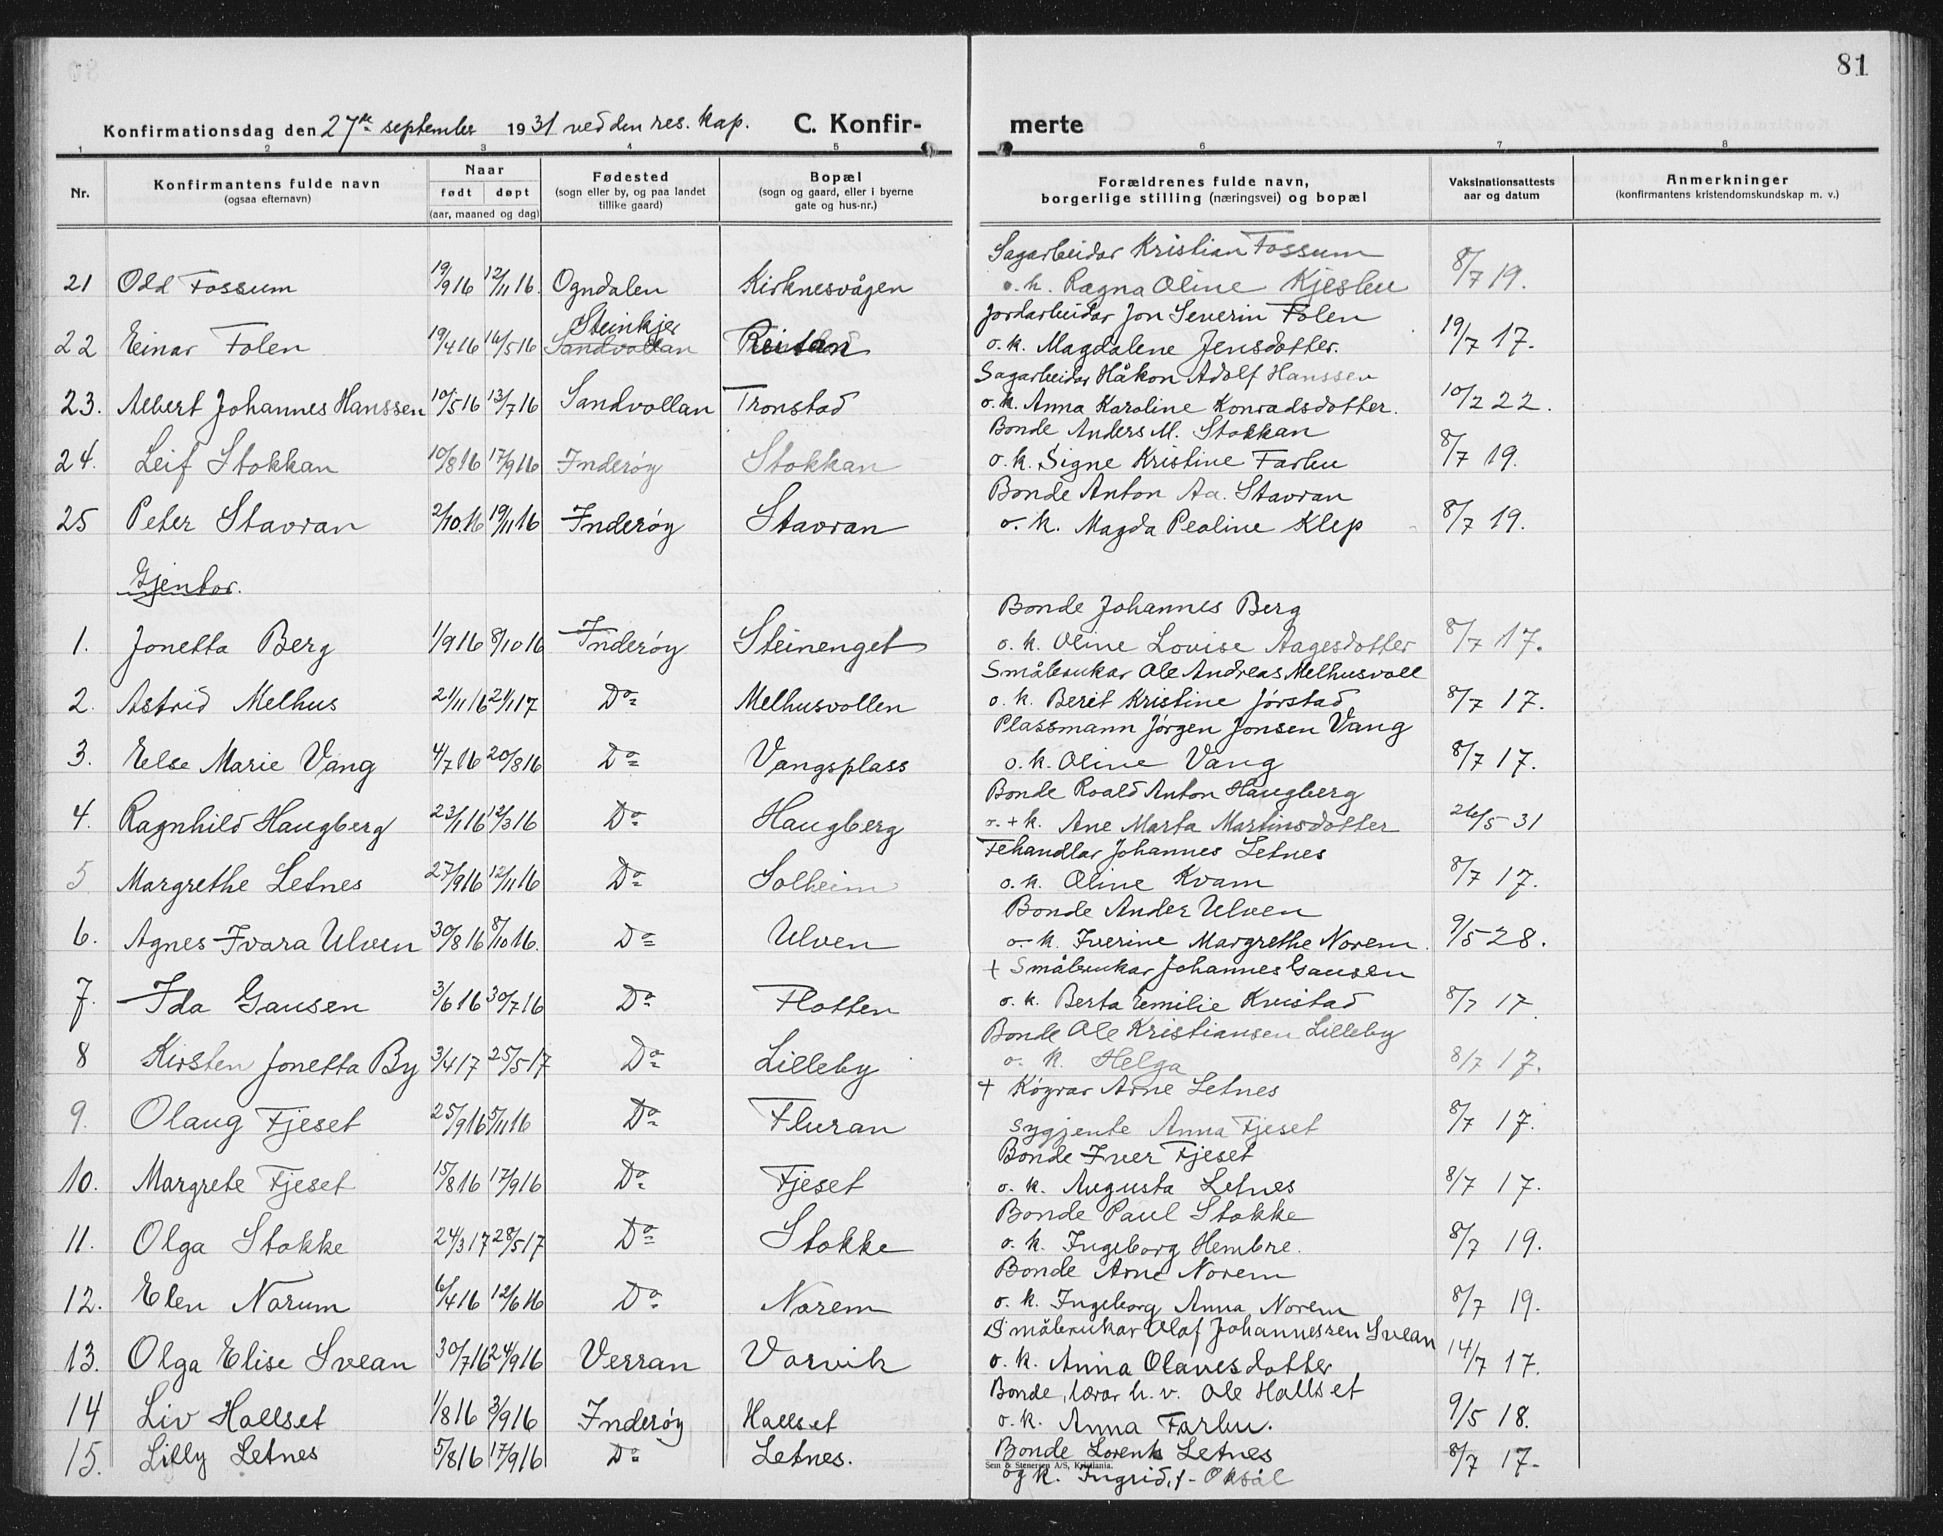 81
Konfirmationsdag den 27de september 1931 ved den res. kap. C. Konfir- merte
1 2 3 4 5 6 7 8
Nr.
Konfirmantens fulde navn
(ogsaa efternavn)
Naar
født døpt
(aar, maaned og dag)
Fødested
(sogn eller by, og paa landet
tillike gaard)
Bopæl
(sogn og gaard, eller i byerne
gate og hus-nr.)
Forældrenes fulde navn,
borgerlige stilling (næringsvei) og bopæl
Vaksinationsattests
aar og datum
Anmerkninger
(konfirmantens kristendomskundskap m. v.)
Sagarbeidar Kristian Fossum
21 Odd Fossum 19/9 16 12/11 16. Ogndalen Kirknesvågen o. k. Ragna Oline Kjeslu 8/7 19.
Steinkjer Jordarbeidar Jon Severin Folen
22 Einar Folen 19/4 16 16/5 16 Sandvollan Reitan o. k. Magdalene Jensdotter. 19/7 17.
Sagarbeidar Håkon Adolf Hanssen
23. Albert Johannes Hanssen 10/5 16 13/7 16 Sandvollan Tronstad o. k. Anna Karoline Konradsdotter. 10/2 22.
Bonde Anders M. Stokkan
24. Leif Stokkan 10/8 16 17/9 16 Inderøy Stokkan o. k. Signe Kristine Farbu 8/7 19.
Bonde Anton Aa. Stavran
25 Peter Stavran 2/10.16 19/11 16 Inderøy Stavran o. k. Magda Peoline Klep 8/7 19.
Gjentor.
Bonde Johannes Berg
1. Jonetta Berg 1/9 16 8/10 16 Inderøy Steinenget o. k. Oline Lovise Aagesdotter 8/7 17.
Småbrukar Ole Andreas Melhusvoll
2. Astrid Melhus 21/11 16 21/1 17 Do Melhusvollen o. k. Berit Kristine Jørstad 8/7 17.
Plassmann Jørgen Jonsen Vang
3. Else Marie Vang 4/7 16 20/8 16 Do Vangsplass o. k. Oline Vang 8/7 17.
Bonde Roald Anton Haugberg
4. Ragnhild Haugberg 23/1 16 12/3 16 Do Haugberg o. + k. Ane Marta Martinsdotter 26/5 31
Fehandlar Johannes Letnes
5. Margrethe Letnes 27/9 16 12/11 16 Do Solheim o. k. Oline Kvam 8/7 17.
Bonde Ander Ulven
6. Agnes Ivara Ulven 30/8 16 8/10 16. Do Ulven o. k. Iverine Margrethe Norem. 9/5 28.
+ Småbrukar Johannes Gausen
7. Ida Gausen 3/6 16 30/7 16 Do Flotten o. k. Berta Emilie Kvistad 8/7 17
Bonde Ole Kristiansen Lilleby
8 Kirsten Jonetta By 3/4 17 25/5 17 Do Lilleby o. k. Helga 8/7 17.
+ Køyrar Arne Letnes
9. Olaug Fjeset 25/9 16 5/11 16 Do Fluran Sygjente Anna Fjeset 8/7 17.
Bonde Iver Fjeset
10. Margrete Fjeset 15/8 16 17/9 16 Do Fjeset o. k. Augusta Letnes 8/7 17.
Bonde Paul Stokke
11. Olga Stokke 24/3 17 28/5 17 Do Stokke o. k. Ingeborg Hembre. 8/7 19.
Bonde Arne Norem
12. Elen Norum 6/4 16 12/6 16 Do Norem o. k. Ingeborg Anna Norem 8/7 19.
Småbrukar Olaf Johannessen Svean
13. Olga Elise Svean 30/7 16 24/9 16 Verran Vorvik o. k. Anna Olavesdotter 14/7 17.
Bonde, lærar h. v. Ole Hallset
14 Liv Hallset 1/8 16 3/9 16 Inderøy Hallset o. k. Anna Farbu. 9/5 18.
15. Lilly Letnes 5/8 16 17/9 16 Do Letnes. Bonde Lorents Letnes 8/7 17.
Sem & Stenersen A/S, Kristiania.
og k. Ingrid, f. Oksål